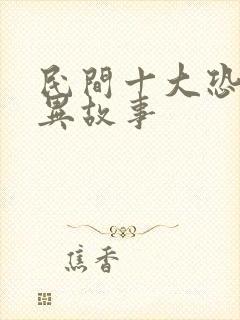 民間十大恐
異故事
焦香